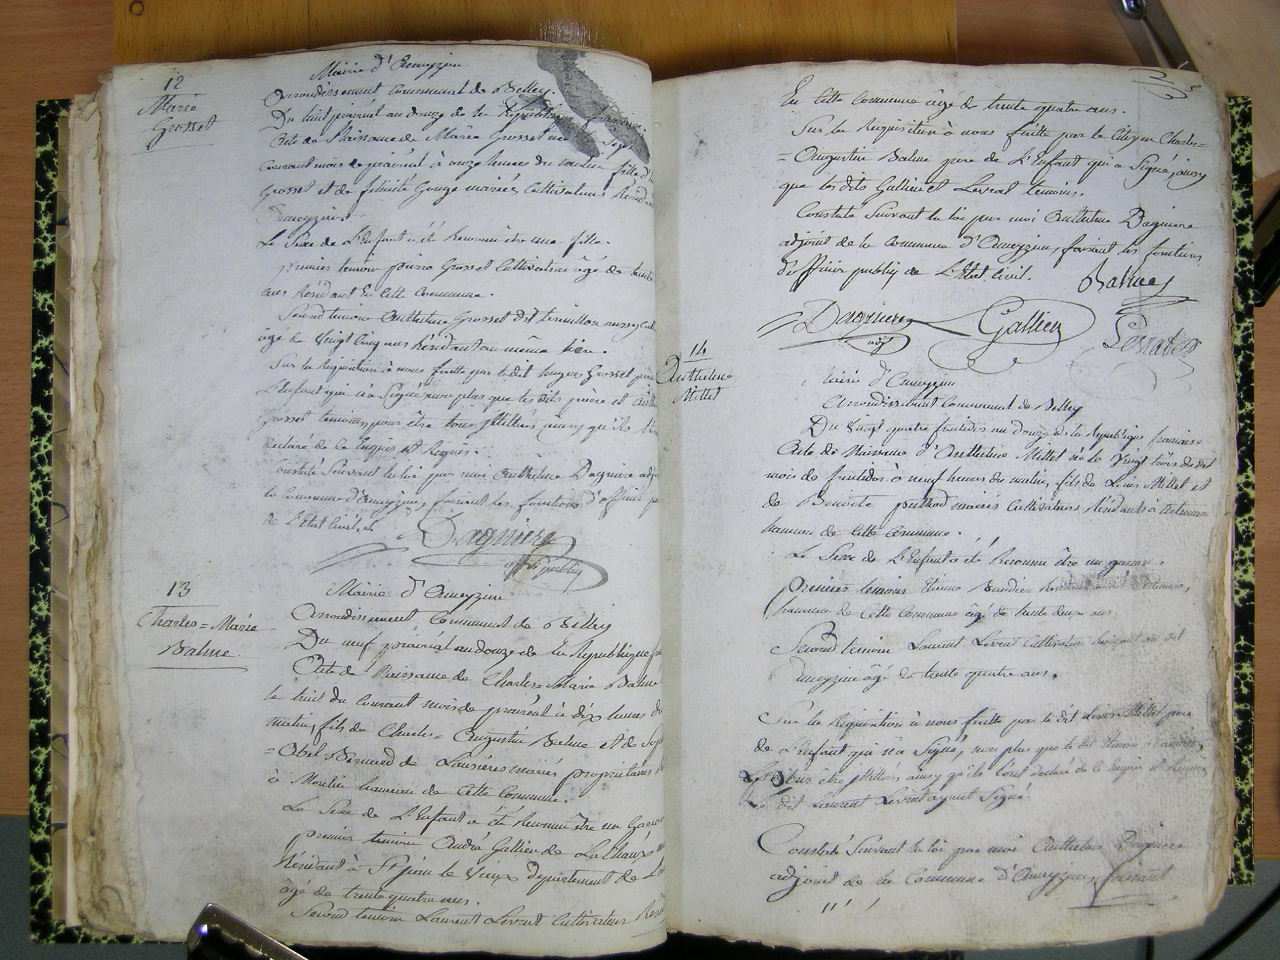 12
Marie
Grosset
Mairie d'Ameyzieu
Arrondissement Communal de Belley.
Du huit prairial an douze de la République
Acte de Naissance de Marie Grosset née
courant mois de prairial à onze heures du fille d
Grosset et de Gouge mariés Cultivateurs Résidant
Ameyzieu.
Le Sexe de L'Enfant a été Reconnu être une fille.
premier temoin pierre Grosset Cultivateur âgé de trente
ans Résidant En Cette Commune.
Second temoin Anthelme Grosset dit
âgé de Vingt Cinq ans Résidant au même lieu.
Sur la Requisition à nous faitte par le dit Grosset père
L'Enfant qui n'a Signé non plus que le dits pierre et
Grosset temoins pour être tous Illitérés ainsy qu'ils
déclaré de ce Enquis et Requis.
Constaté Suivant la loi par moi Anthelme Dagniere adj
la Commune d'Ameyzieu, faisant les fonctions d'officier pu
de L'état Civil.
Dagniere
off. publiq
13
Charles=Marie
Balme.
Mairie d'Ameyzieu
Arrondissement Communal de Belley
Du neuf prairial an douze de la République f
Acte de Naissance de Charles Marie Balme
le huit du courant mois de prairial à dix heures du
matin, fils de Charles=Augustin Balme et de
=Obel Bernard de Lausières mariés propriétaires
à hameau de Cette Commune.
Le Sexe de L'Enfant a été Reconnu être un Garçon
premier temoin André Gallien de
Résidant à St pierre le Vieux département de L
âgé de trente quatre ans.
Second temoin Laurent Levrat Cultivateur Resid
En Cette Commune âgé de trente quatre ans.
Sur la Requisition à nous faitte par le Citoyen Charles=
=Augustin Balme père de L'Enfant qui a Signé, ainsy
que les dits Gallien et Levrat temoins.
Constaté Suivant la loi par moi Anthelme Dagniere
adjoint de la Commune d'Ameyzieu, faisant les fonctions
d'officier publiq de L'état Civil.
Balme
Dagniere
adj
Gallien
Levrat
14
Anthelme
Millet
Mairie d'Ameyzieu
Arrondissement Communal de Belley
Du Vingt quatre fructidor an douze de la République française
Acte de Naissance d'Anthelme Millet né le Vingt trois du dit
mois de fructidor à neuf heures du matin, fils de Louis Millet et
de Benoite mariés Cultivateurs Résidants à
hameau de Cette Commune.
Le Sexe de L'Enfant a été Reconnu être un garçon.
premier temoin
hameau de Cette Commune âgé de trente deux ans.
Second temoin Laurent Levrat Cultivateur Résidant au dit
Ameyzieu âgé de trente quatre ans.
Sur la Requisition à nous faitte par le dit Louis Millet père
de L'Enfant qui n'a Signé, non plus que le dit
pour être Illitérés ainsy qu'ils l'ont déclaré de ce Enquis et Requis
le dit Laurent Levrat ayant Signé.
Constaté Suivant la loi par moi Anthelme Dagniere
adjoint de la Commune d'Ameyzieu, faisant